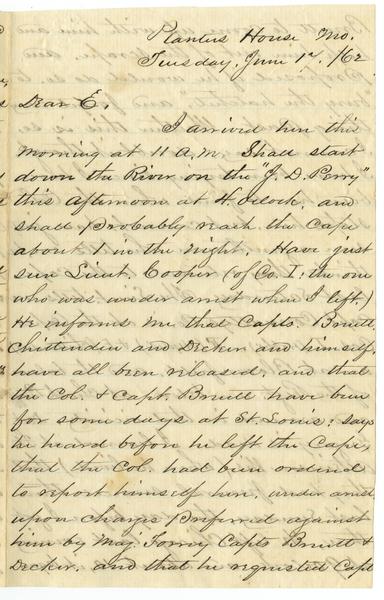 Planters House Mo.
Tuesday, June 17, /62
Dear E.
I arrived here this
morning at 11 A.M. Shall start
down the River on the "J. D. Perry"
this afternoon at 4 oclock, and
shall probably reach the Cape
about 1 in the night. Have just
seen Lieut. Cooper (of Co. I: the one
who was under arrest when I left.)
He informs me that Capts. Bruett,
Chittenden and Decker and himself,
have all been released, and that
the Col. & Capt. Bruett have been
for some days at St. Louis: says
he heard before he left the Cape,
that the Col. had been ordered
to report himself here, under arrest
upon charges preferred against
him by Maj. Torrey Capts Bruett &
Decker, and that he requested Capt